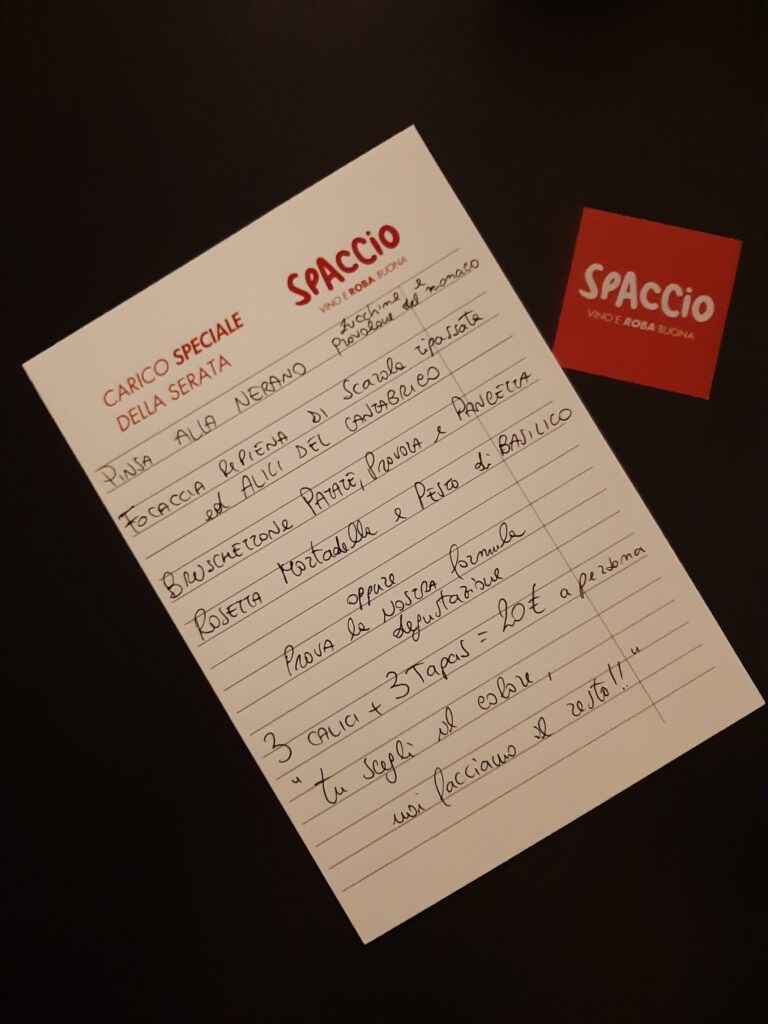 SPACCIO
VINO E ROBA BUONA
CARICO SPECIALE
DELLA SERATA
PINSA ALLA NERANO zucchine e
provolone del monaco
FOCACCIA RIPIENA DI Scarola ripassata
ed ALICI DEL CANTABRICO
BRUSCHETTONE PATATE, PROVOLA e PANCETTA
ROSETTA Mortadella e PESTO di BASILICO
oppure
PROVA la NOSTRA formula
degustazione
3 CALICI + 3 Tapas = 20€ a persona
"Tu scegli il colore,
noi facciamo il resto!!"
SPACCIO
VINO E ROBA BUONA